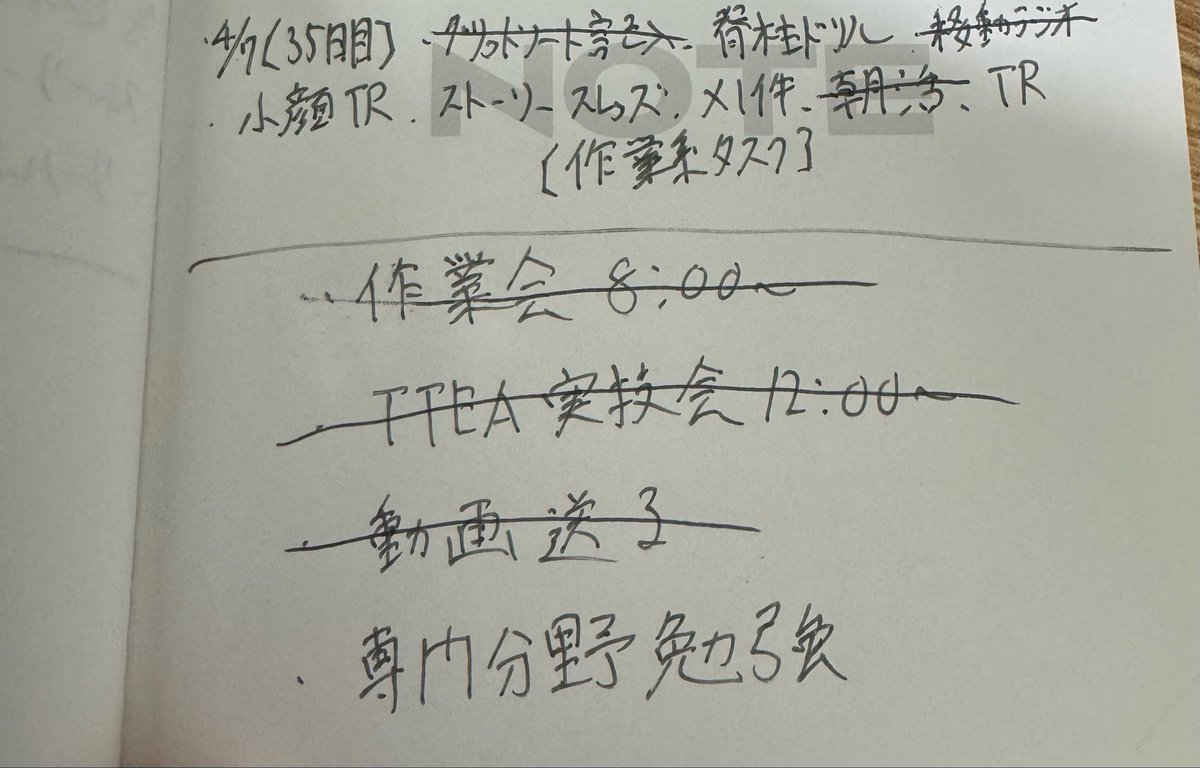 ・4/7(35日目)・グリッドシート記入、脊柱ドリル、移動ラジオ
・小顔TR、ストーリースレッズ、×1件、朝活、TR
[作業系タスク]
・作業会 8:00〜
・TTEA 実技会 12:00〜
・動画送る
・専門分野勉強
NOTE